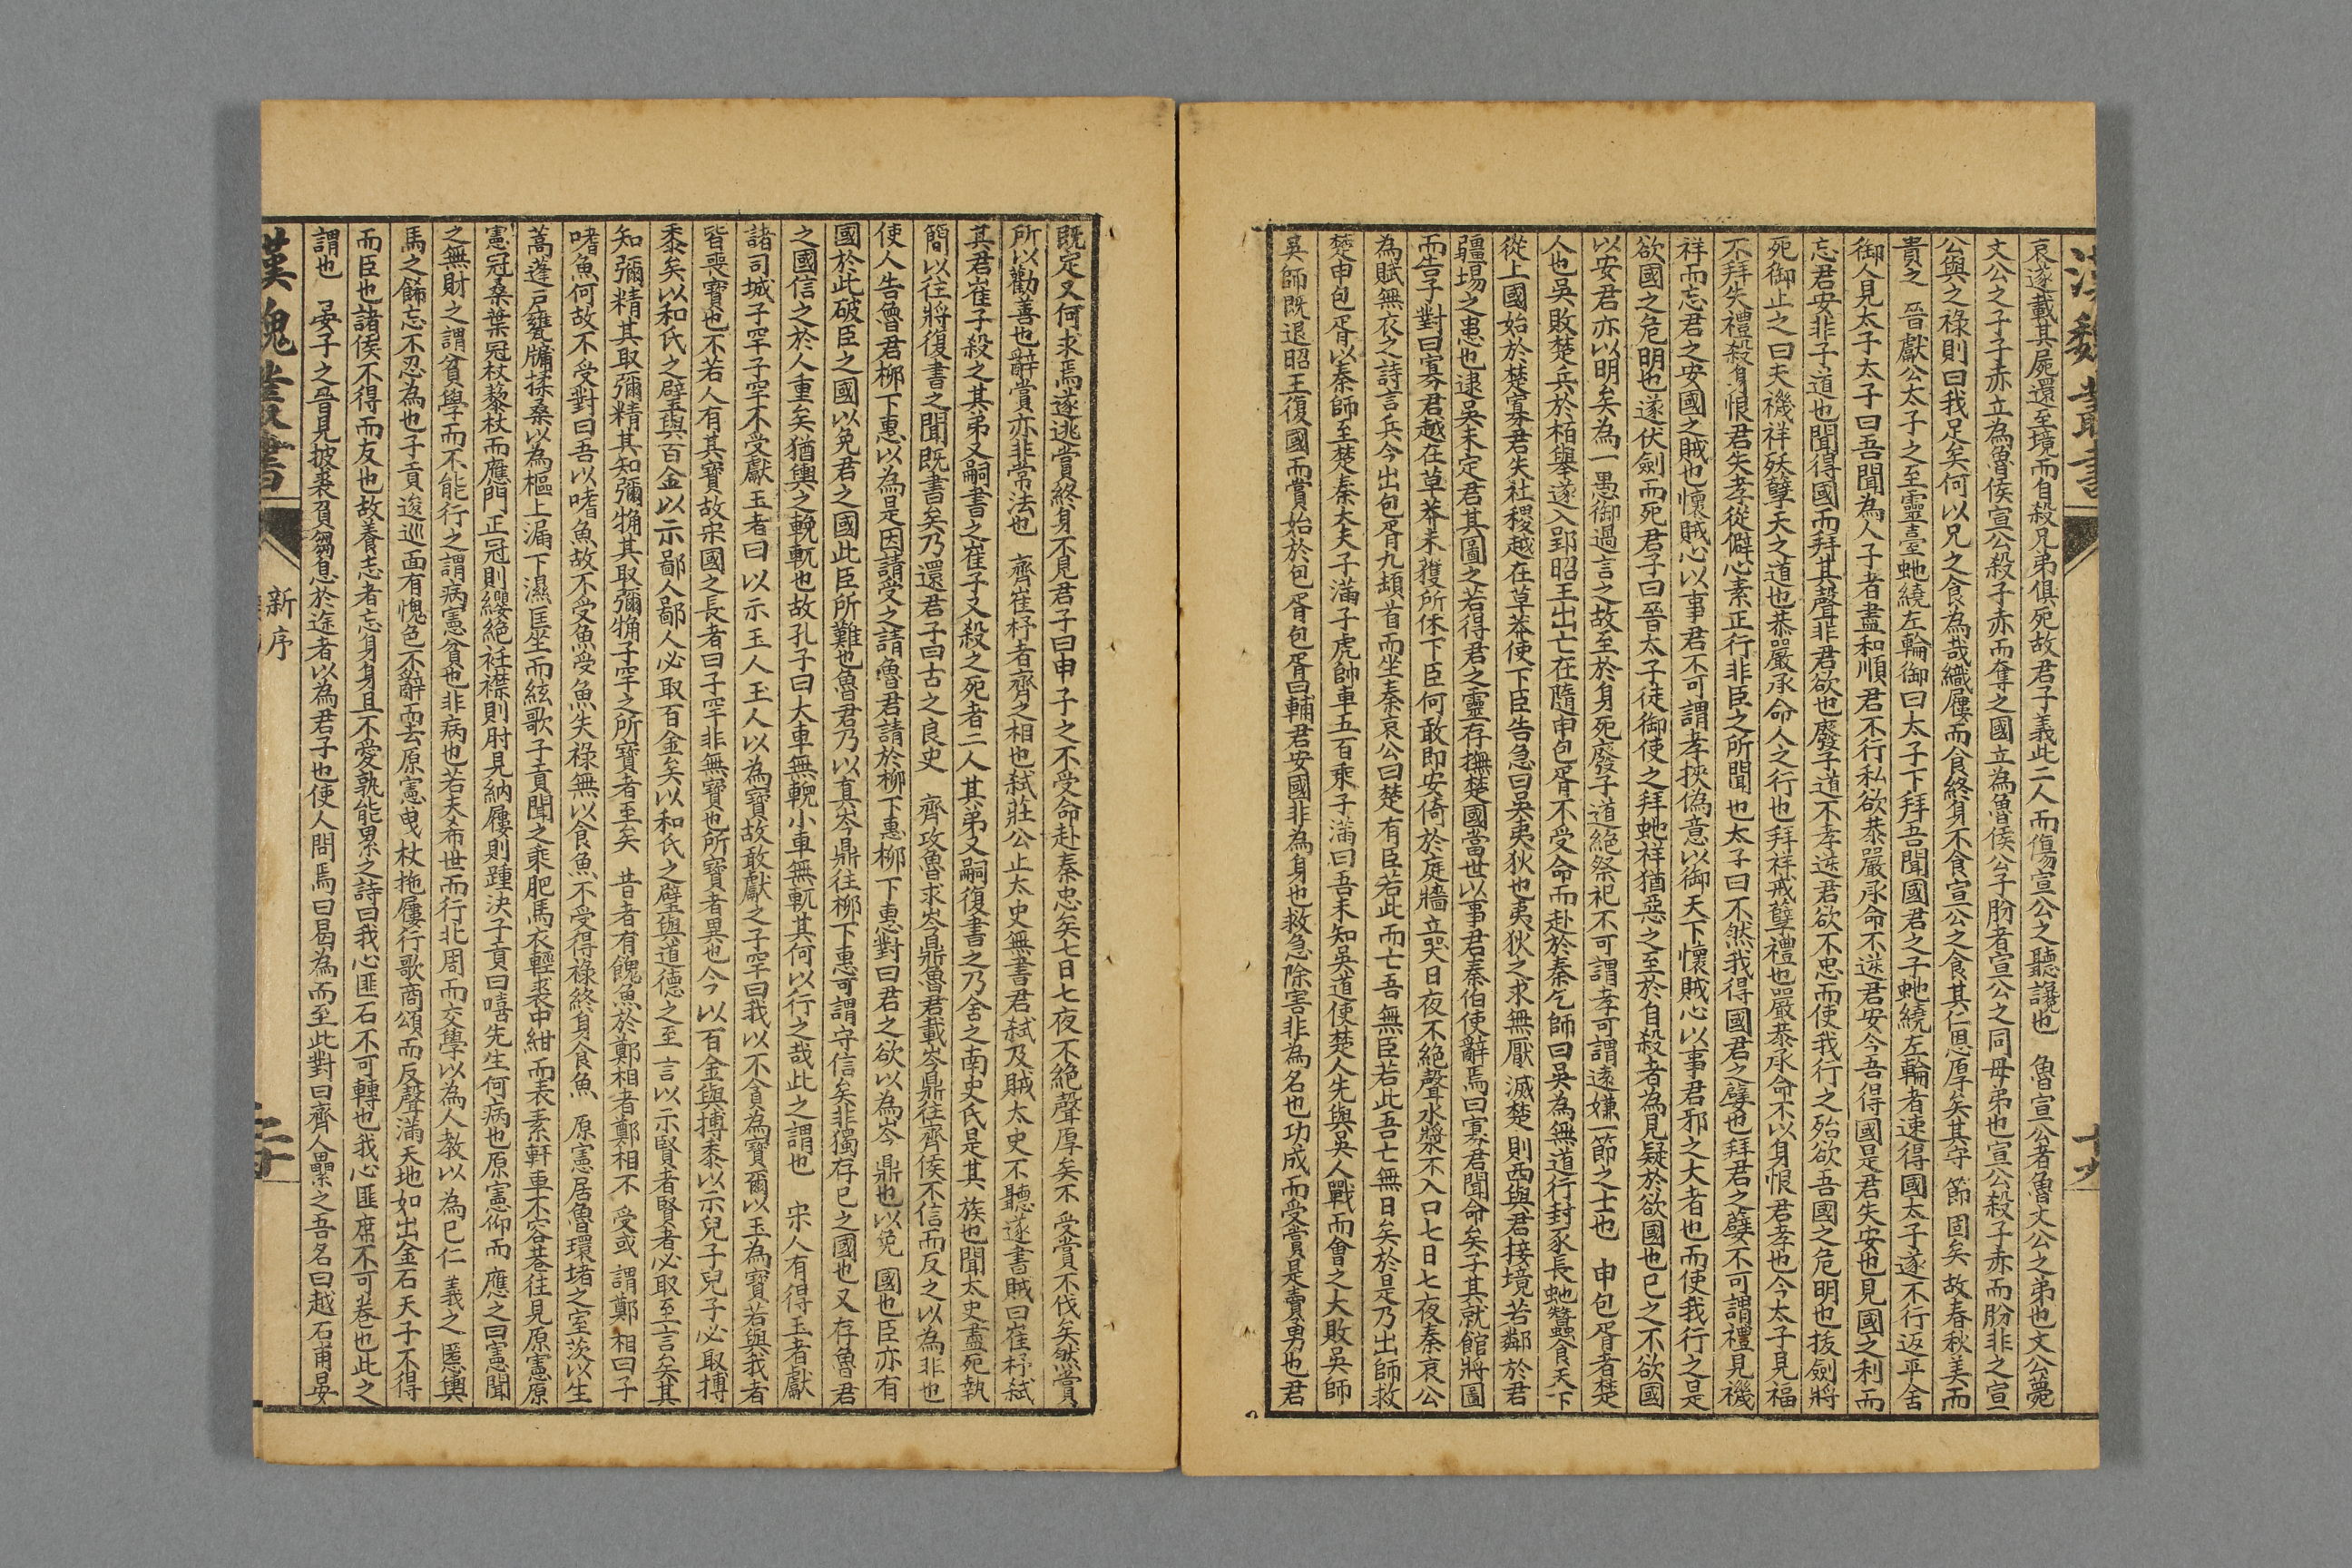 漢魏叢書
十九
哀遂載其屍還至境而自殺兄弟俱死故君子義此二人而傷宣公之聽讒也　魯宣公者魯文公之弟也文公薨
文公之子子赤立為魯侯宣公殺子赤而奪之國立為魯侯公子肹者宣公之同母弟也宣公殺子赤而肹非之宣
公與之祿則曰我足矣何以兄之食為哉織屨而食終身不食宣公之食其仁恩厚矣其守節固矣故春秋美而
貴之　晉獻公太子之至靈臺虵繞左輪御曰太子下拜吾聞國君之子虵繞左輪者速得國太子遂不行返乎舍
御人見太子太子曰吾聞為人子者盡和順君不行私欲恭嚴承命不逆君安今吾得國是君失安也見國之利而
忘君安非子道也聞得國而拜其聲非君欲也廢子道不孝逆君欲不忠而使我行之殆欲吾國之危明也拔劍將
死御止之曰夫禨祥妖孽天之道也恭嚴承命人之行也拜祥戒孽禮也嚴恭承命不以身恨君孝也今太子見福
不拜失禮殺身恨君失孝從僻心棄正行非臣之所聞也太子曰不然我得國君之孽也拜君之孽不可謂禮見禨
祥而忘君之安國之賊也懷賊心以事君不可謂孝挾偽意以御天下懷賊心以事君邪之大者也而使我行之是
欲國之危明也遂伏劍而死君子曰晉太子徒御使之拜虵祥猶惡之至於自殺者為見疑於欲國也已之不欲國
以安君亦以明矣為一愚御過言之故至於身死廢子道絕祭祀不可謂孝可謂遠嫌一節之士也　申包胥者楚
人也吳敗楚兵於栢舉遂入郢昭王出亡在隨申包胥不受命而赴於秦乞師曰吳為無道行封豕長虵蠶食天下
從上國始於楚寡君失社稷越在草莽使下臣告急曰吳夷狄也夷狄之求無厭滅楚則西與君接境若鄰於君
疆埸之患也逮吳未定君其圖之若得君之靈存撫楚國當世以事君秦伯使辭焉曰寡君聞命矣子其就館將圖
而告子對曰寡君越在草莽未獲所休下臣何敢即安倚於庭牆立哭日夜不絕聲水漿不入口七日七夜秦哀公
為賦無衣之詩言兵今出包胥九頓首而坐秦哀公曰楚有臣若此而亡吾無臣若此吾亡無日矣於是乃出師救
楚申包胥以秦師至楚秦大夫子滿子虎帥車五百乘子滿曰吾未知吳道使楚人先與吳人戰而會之大敗吳師
吳師既退昭王復國而賞始於包胥包胥曰輔君安國非為身也救急除害非為名也功成而受賞是賣勇也君
既定又何求焉遂逃賞終身不見君子曰申子之不受命赴秦忠矣七日七夜不絕聲厚矣不受賞不伐矣然賞
所以勸善也辭賞亦非常法也　齊崔杼者齊之相也弑莊公止太史無書君弑及賊太史不聽遂書賊曰崔杼弑
其君崔子殺之其弟又嗣書之崔子又殺之死者二人其弟又嗣復書之乃舍之南史氏是其族也聞太史盡死執
簡以往將復書之聞既書矣乃還君子曰古之良史　齊攻魯求岑鼎魯君載岑鼎往齊侯不信而反之以為非也
使人告魯君柳下惠以為是因請受之請魯君請於柳下惠柳下惠對曰君之欲以為岑鼎也以免國也臣亦有
國於此破臣之國以免君之國此臣所難也魯君乃以真岑鼎往柳下惠可謂守信矣非獨存已之國也又存魯君
之國信之於人重矣猶輿之輗軏也故孔子曰大車無輗小車無軏其何以行之哉此之謂也　宋人有得玉者獻
諸司城子罕子罕不受獻玉者曰以示玉人玉人以為寶故敢獻之子罕曰我以不貪為寶爾以玉為寶若與我者
皆喪寶也不若人有其寶故宋國之長者曰子罕非無寶也所寶者異也今以百金與摶黍以示兒子兒子必取摶
黍矣以和氏之璧與百金以示鄙人鄙人必取百金矣以和氏之璧與道德之至言以示賢者賢者必取至言矣其
知彌精其取彌精其知彌觕其取彌觕子罕之所寶者至矣　昔者有餽魚於鄭相者鄭相不受或謂鄭相曰子
嗜魚何故不受對曰吾以嗜魚故不受魚受魚失祿無以食魚不受得祿終身食魚　原憲居魯環堵之室茨以生
蒿蓬戶甕牖揉桑以為樞上漏下濕匡坐而絃歌子貢聞之乘肥馬衣輕裘中紺而表素軒車不容巷往見原憲原
憲冠桑葉冠杖藜杖而應門正冠則纓絕衽襟則肘見納屨則踵決子貢曰嘻先生何病也原憲仰而應之曰憲聞
之無財之謂貧學而不能行之謂病憲貧也非病也若夫希世而行比周而交學以為人教以為已仁義之慝輿
馬之飾忘不忍為也子貢逡巡面有愧色不辭而去原憲曳杖拖屨行歌商頌而反聲滿天地如出金石天子不得
而臣也諸侯不得而友也故養志者忘身身且不愛孰能累之詩曰我心匪石不可轉也我心匪席不可卷也此之
謂也　晏子之晉見披裘負芻息於途者以為君子也使人問焉曰曷為而至此對曰齊人纍之吾名曰越石甫晏
漢魏叢書
新序
二十